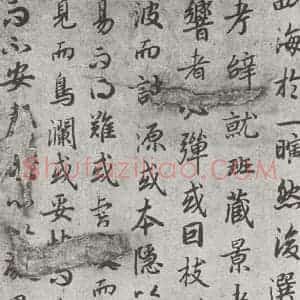 四海於一瞬然後選
考辭就班藏景者
響者必彈或因枝
波而討源或本隱以
易而得難或虎而
見而鳥瀾或妥帖而
而不安心以